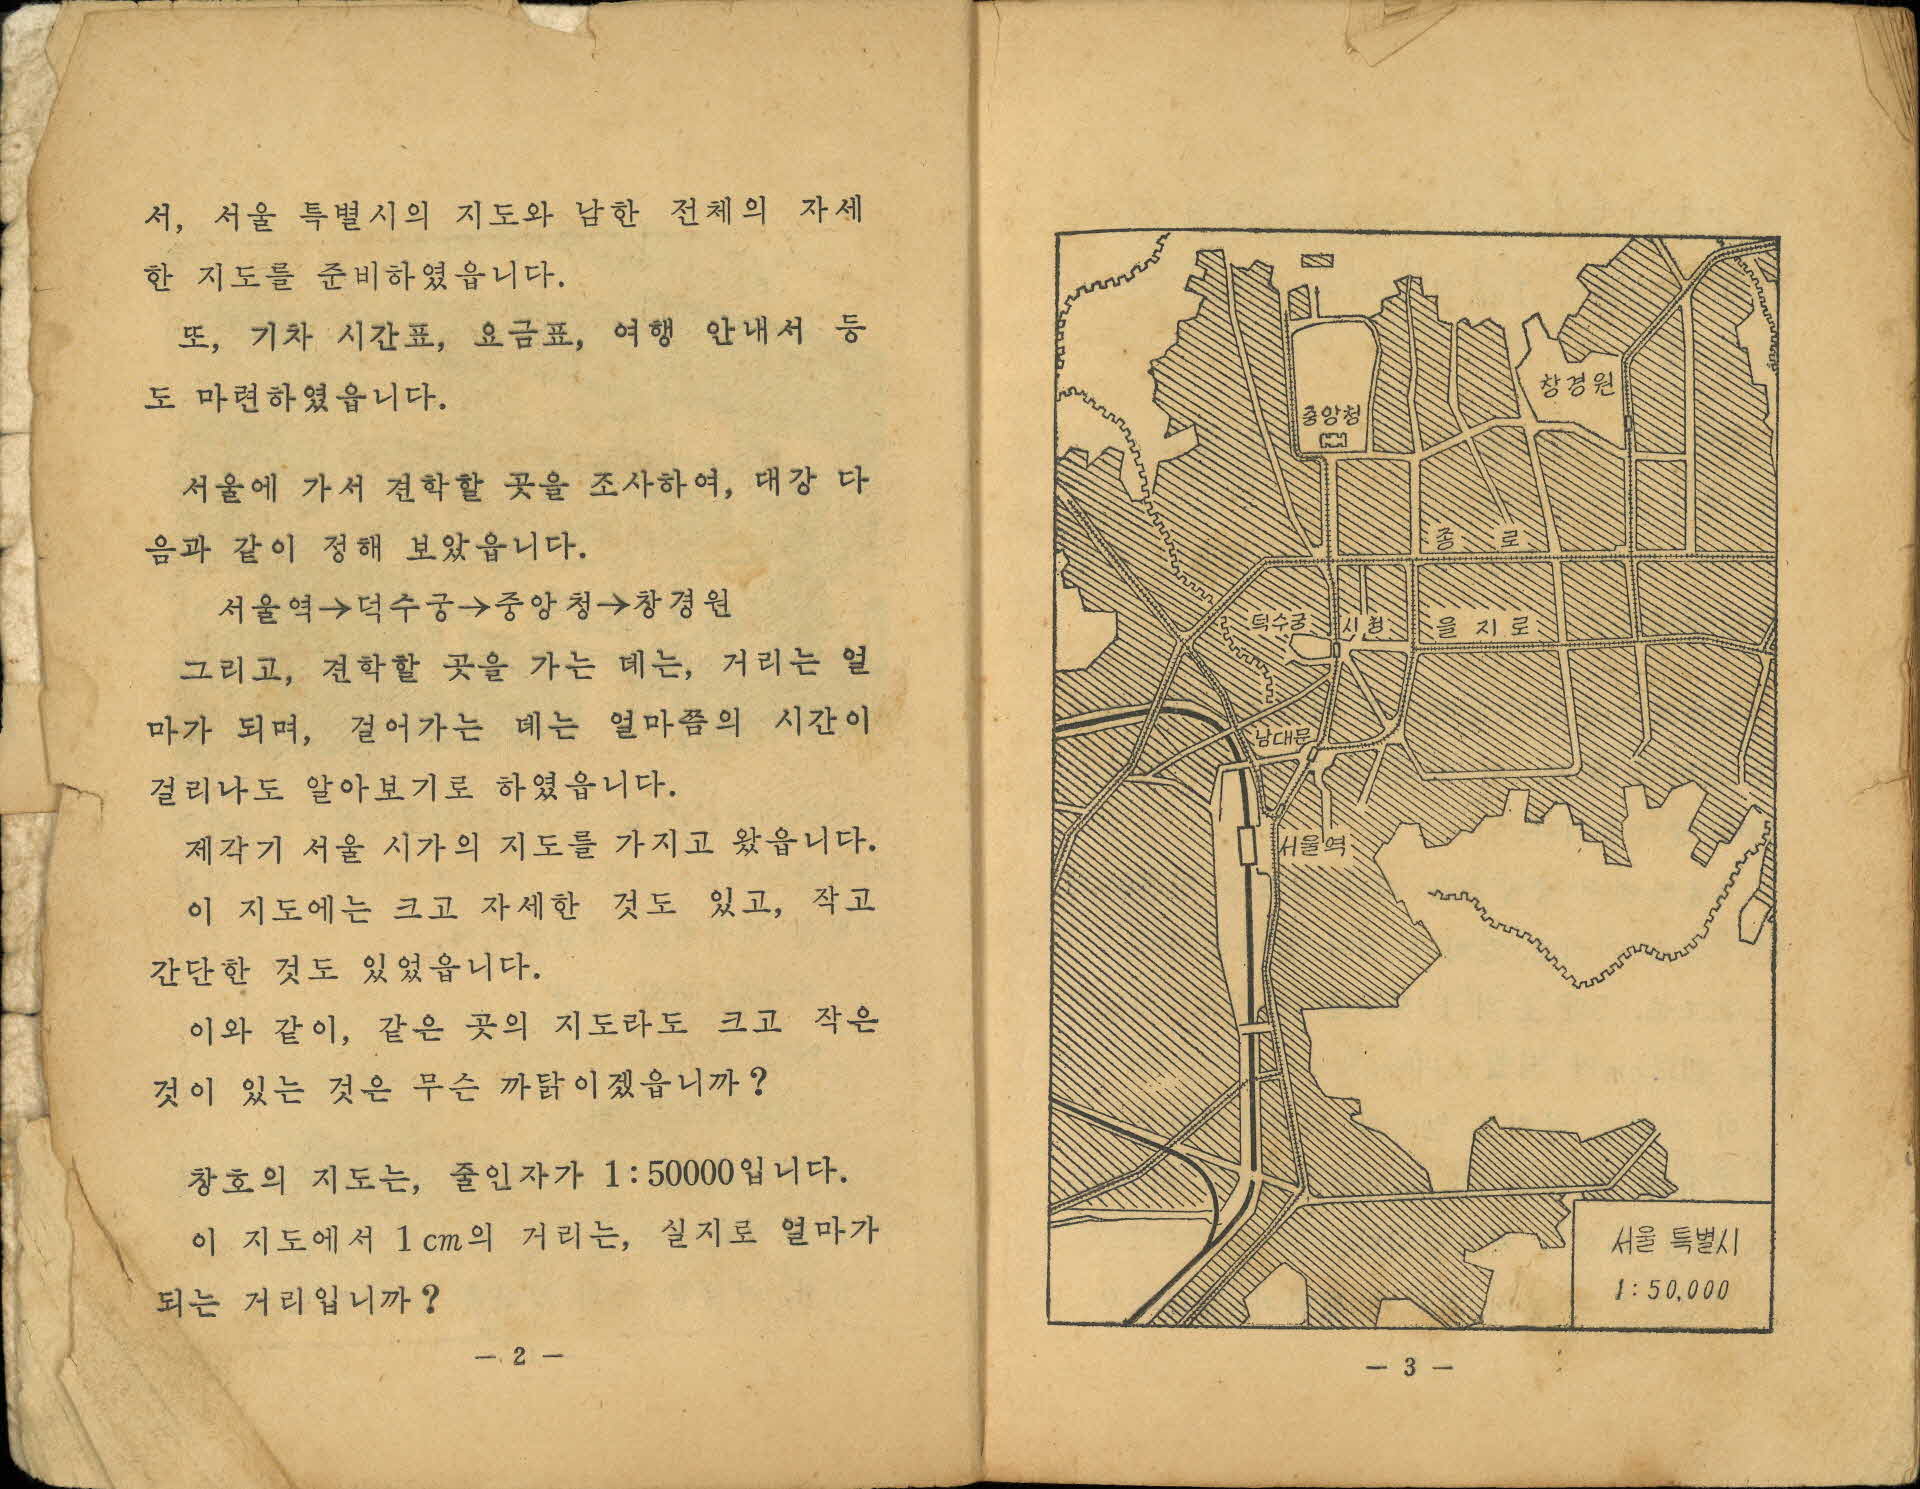 서, 서울 특별시의 지도와 남한 전체의 자세
한 지도를 준비하였읍니다.
또, 기차 시간표, 요금표, 여행 안내서 등
도 마련하였읍니다.
서울에 가서 견학할 곳을 조사하여, 대강 다
음과 같이 정해 보았읍니다.
서울역→덕수궁→중앙청→창경원
그리고, 견학할 곳을 가는 데는, 거리는 얼
마가 되며, 걸어가는 데는 얼마쯤의 시간이
걸리나도 알아보기로 하였읍니다.
제각기 서울 시가의 지도를 가지고 왔읍니다.
이 지도에는 크고 자세한 것도 있고, 작고
간단한 것도 있었읍니다.
이와 같이, 같은 곳의 지도라도 크고 작은
것이 있는 것은 무슨 까닭이겠읍니까?
창호의 지도는, 줄인자가 1:50000입니다.
이 지도에서 1cm의 거리는, 실지로 얼마가
되는 거리입니까?
— 2 —
창경원
중앙청
종 로
덕수궁 시청 을지로
남대문
서울역
서울 특별시
1:50,000
— 3 —